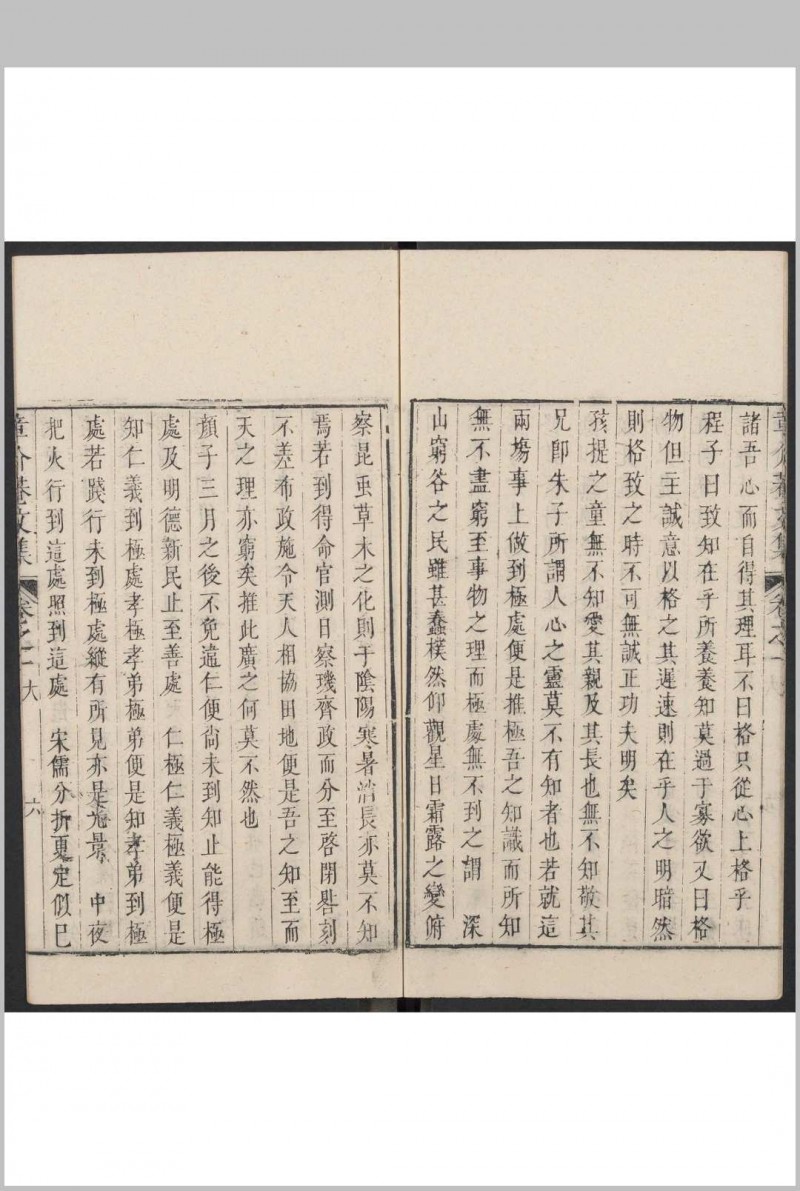 諸吾心而自得其理耳不曰格只從心上格乎
程子曰致知在乎所養養知莫過于寡欲又曰格
物但主誠意以格之其遲速則在乎人之明暗然
則格致之時不可無誠正功夫明矣
孩提之童無不知愛其親及其長也無不知敬其
兄卽朱子所謂人心之靈莫不有知者也若就這
兩塲事上做到極處便是推極吾之知識而所知
無不盡窮至事物之理而極處無不到之謂　深
山窮谷之民雖甚蠢樸然仰觀星日霜露之變俯
察昆虫草木之化則于陰陽寒暑消長亦莫不知
焉若到得命官測日察璣齊政而分至啓閉晷刻
不差布政施令天人相協田地便是吾之知至而
天之理亦窮矣推此廣之何莫不然也
顏子三月之後不免違仁便尚未到知止能得極
處及明德新民止至善處　仁極仁義極義便是
知仁義到極處孝極孝弟極弟便是知孝弟到極
處若踐行未到極處縱有所見亦是光景　中夜
把火行到這處照到這處　宋儒分折更定似已
章介菴文集
卷之一
六